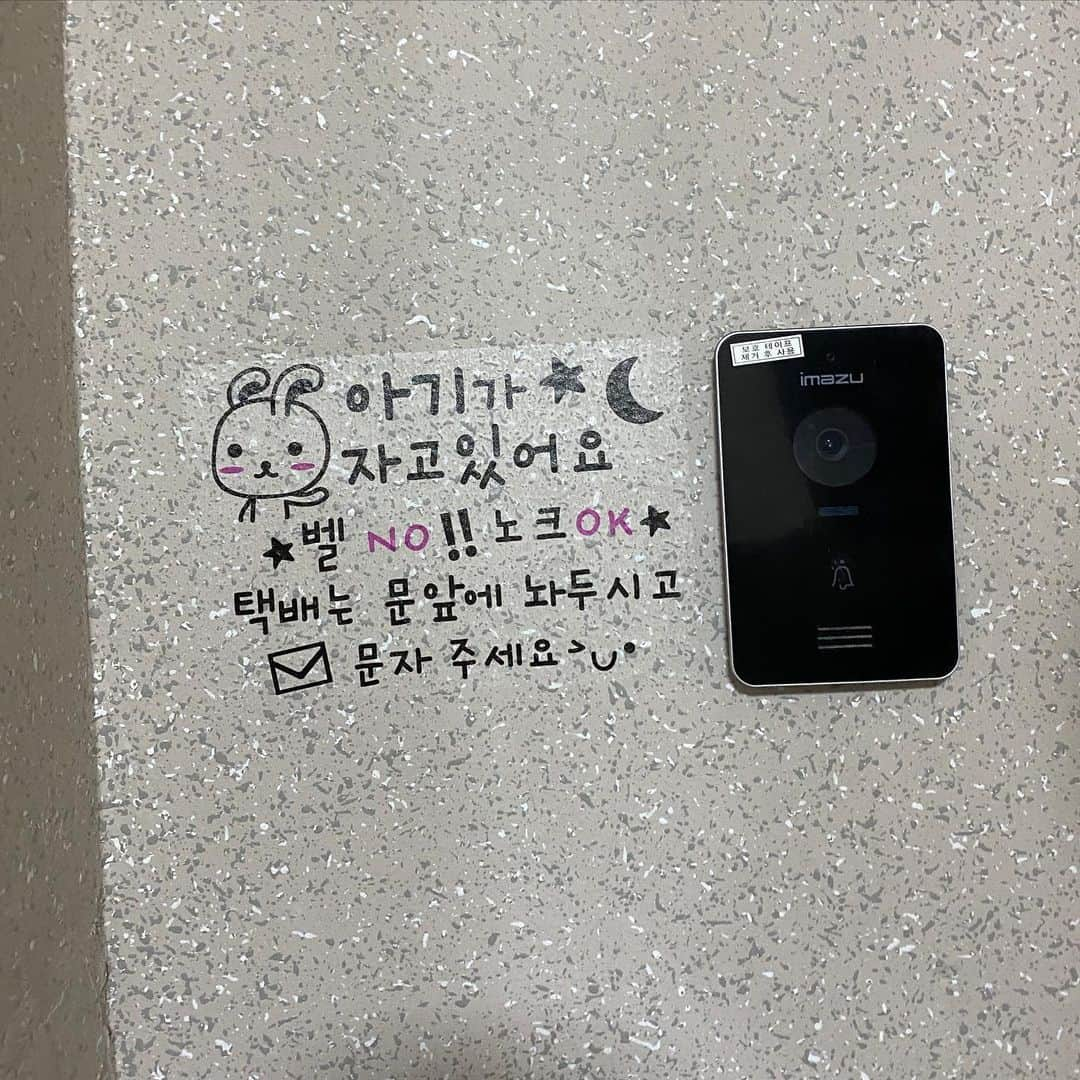 아기가
자고있어요
★벨 NO!! 노크OK★
택배는 문앞에 놔두시고
문자 주세요
보호 테이프
제거 후 사용
imazu